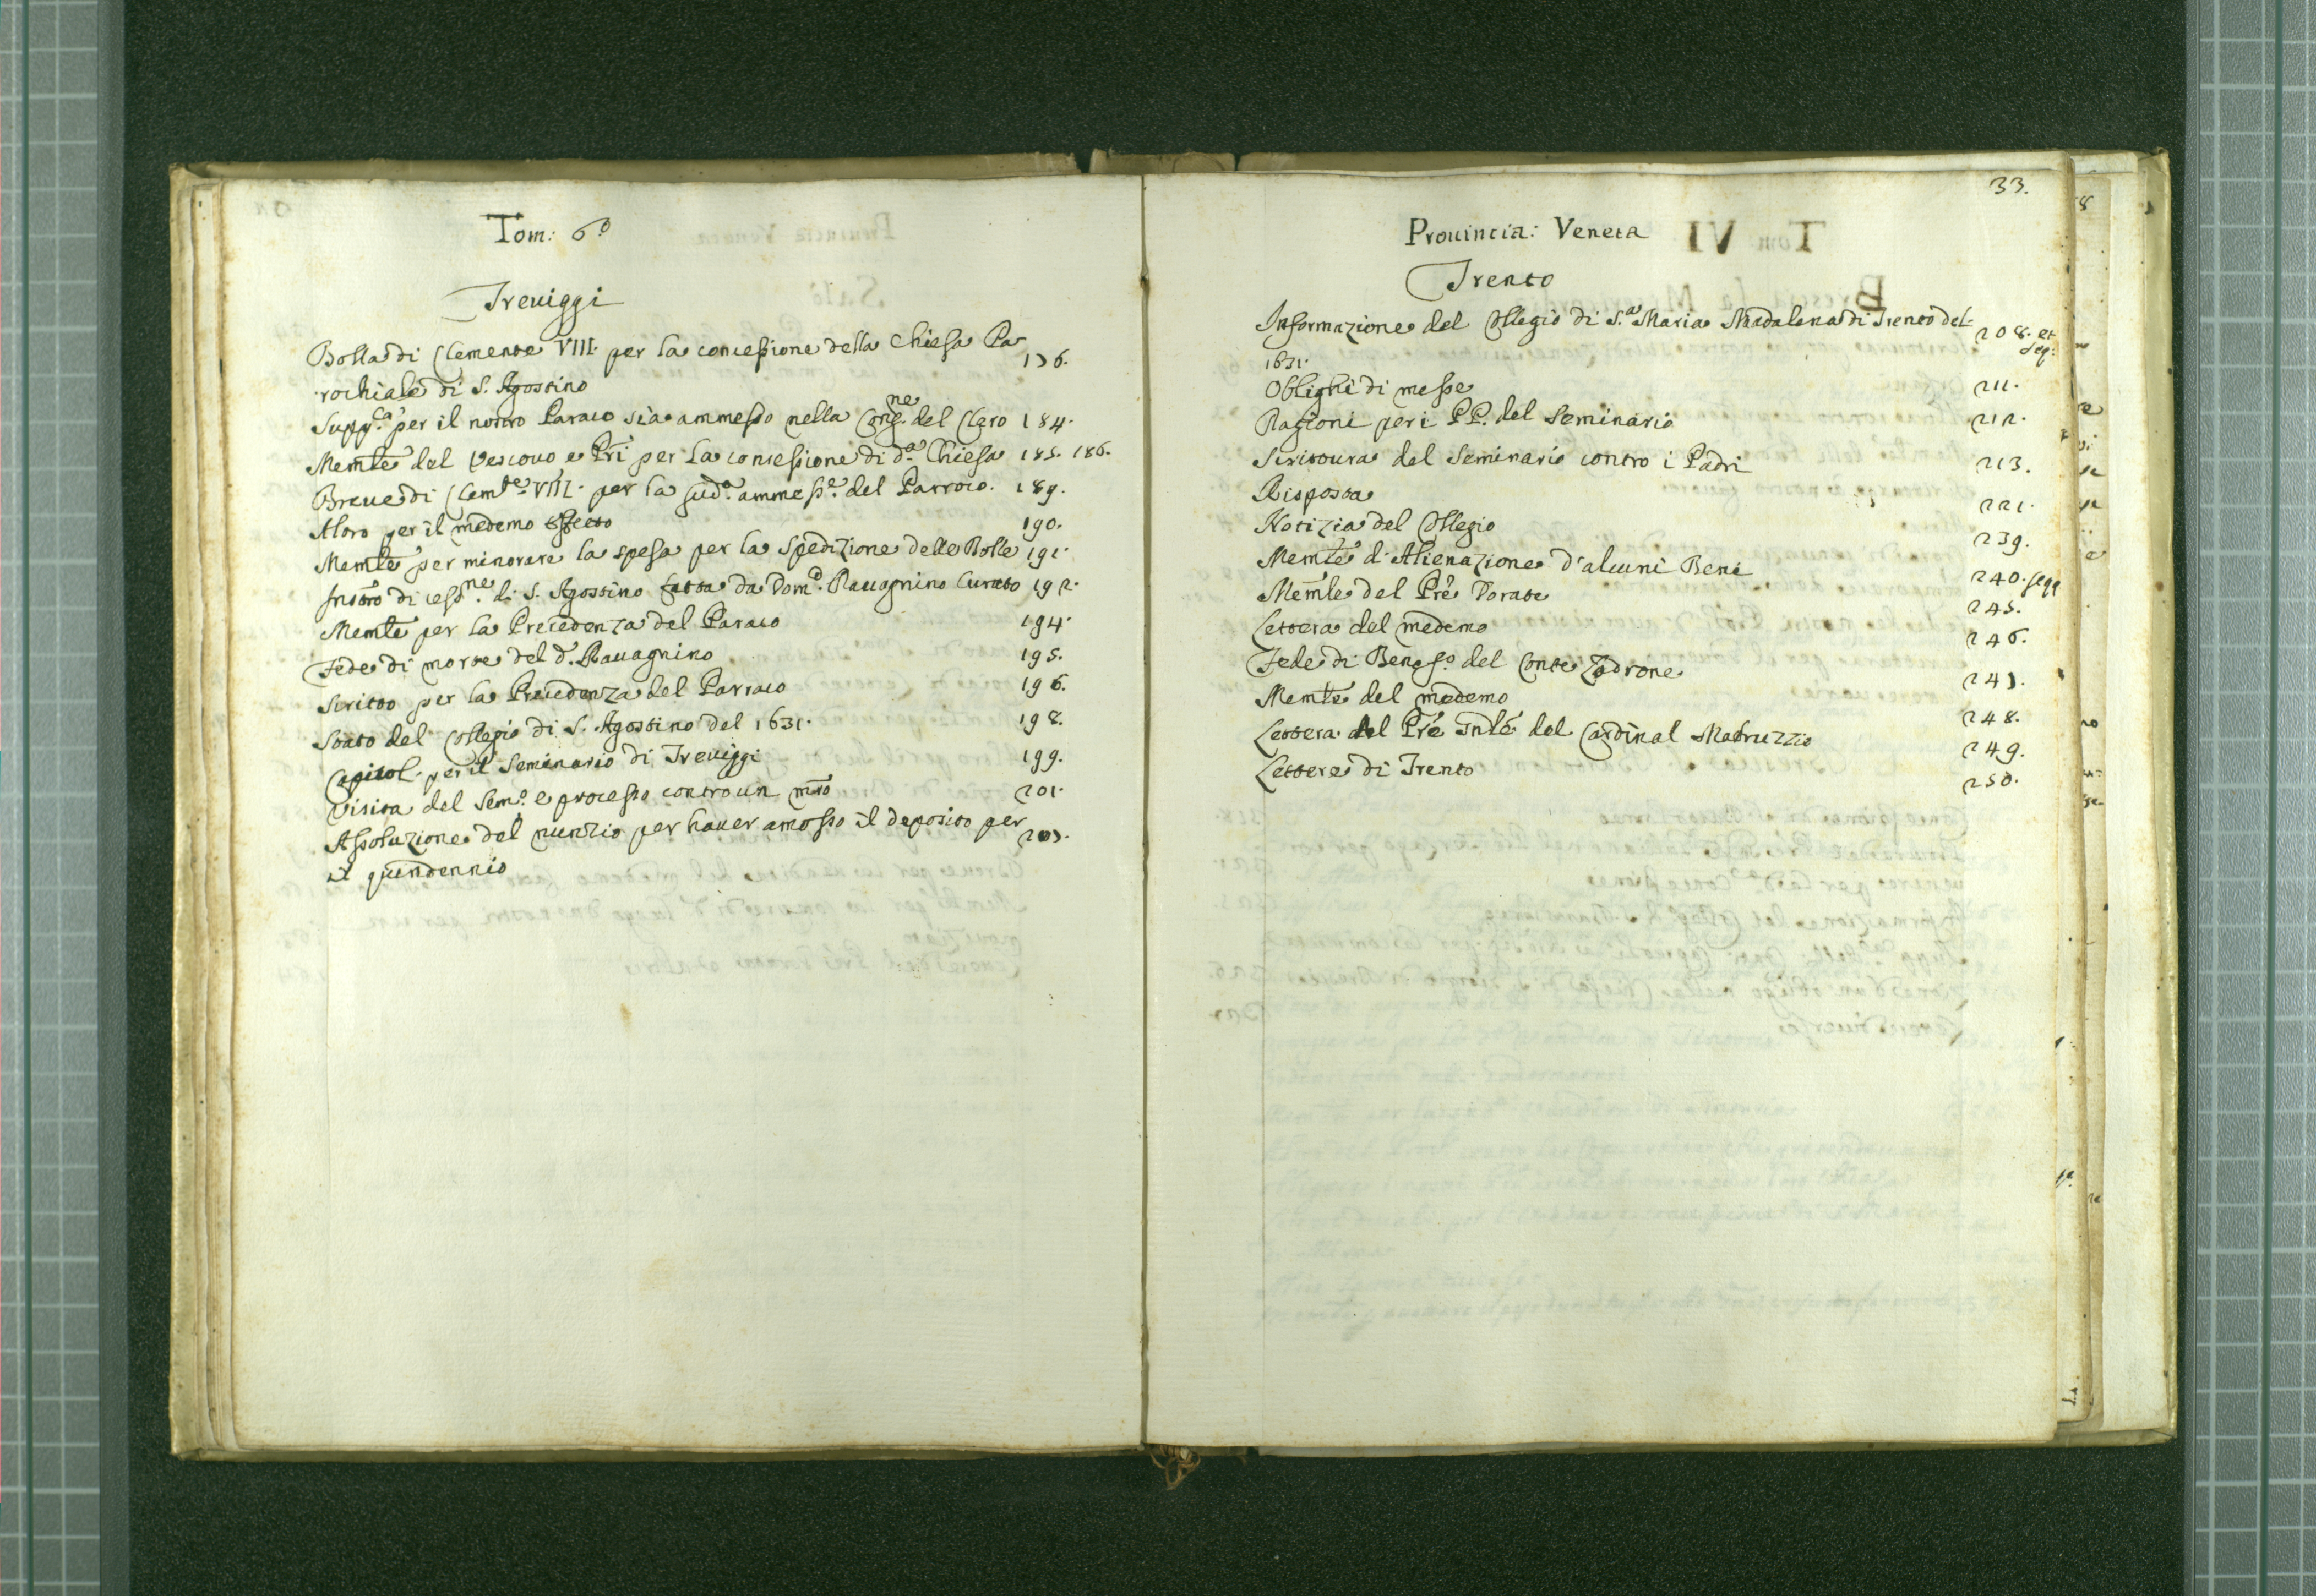 Tom: 6.º
Treuiggi
Bolla di Clemente VIII. per la concessione della Chiesa Pa
rochiale di S. Agostino 176.
Supp.ca per il nostro Paraco sia ammesso nella Cong.ne del Clero 184.
Memle del Vescouo e Pri per la concessione di d.a Chiesa 185. 186.
Breue di Clem.te VIII. per la sud.a ammess.e del Parroco. 189.
Altro per il medemo effetto 190.
Memle per minorare la spesa per la spedizione delle Bolle 191.
Instro di cess.ne di S. Agostino fatta da Dom.o Rauagnino Curato 192.
Memle per la Precedenza del Paraco 194.
Fede di morte del d.o Rauagnino 195.
Scritto per la Precedenza del Parraco 196.
Stato del Collegio di S. Agostino del 1631. 198.
Capitol. per il Seminario di Treuiggi 199.
Visita del Sem.o e processo contro un mro 201.
Assoluzione del nunzio per hauer amosso il deposito per
il quindennio 207.
33.
Prouincia: Veneta
Trento
Informazione del Collegio di S.a Maria Madalena di Trento del 208. et seq:
1631.
Oblighi di messe 211.
Ragioni per i PP. del Seminario 212.
Scrittura del Seminario contro i Padri 213.
Risposta 221.
Notizia del Collegio 239.
Memle d'Alienazione d'alcuni Beni 240. segg
Memle del Pre Dorate 245.
Lettera del medemo 246.
Fede di Benef.o del Conte Lodrone 247.
Memle del medemo 248.
Lettera del Pre Gnle del Cardinal Madruzzio 249.
Lettere di Trento 250.